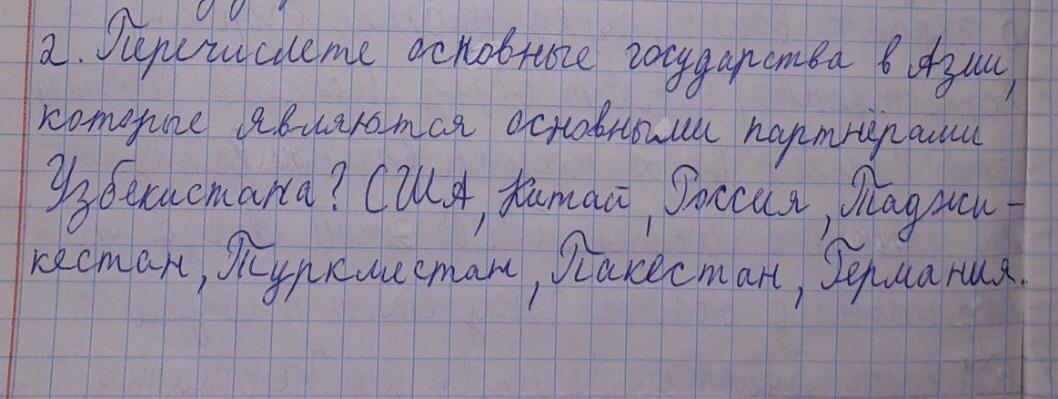 2. Перечислете основные государства в Азии,
которые являются основными партнёрами
Узбекистана? США, Китай, Россия, Таджи-
кестан, Туркместан, Пакестан, Германия.